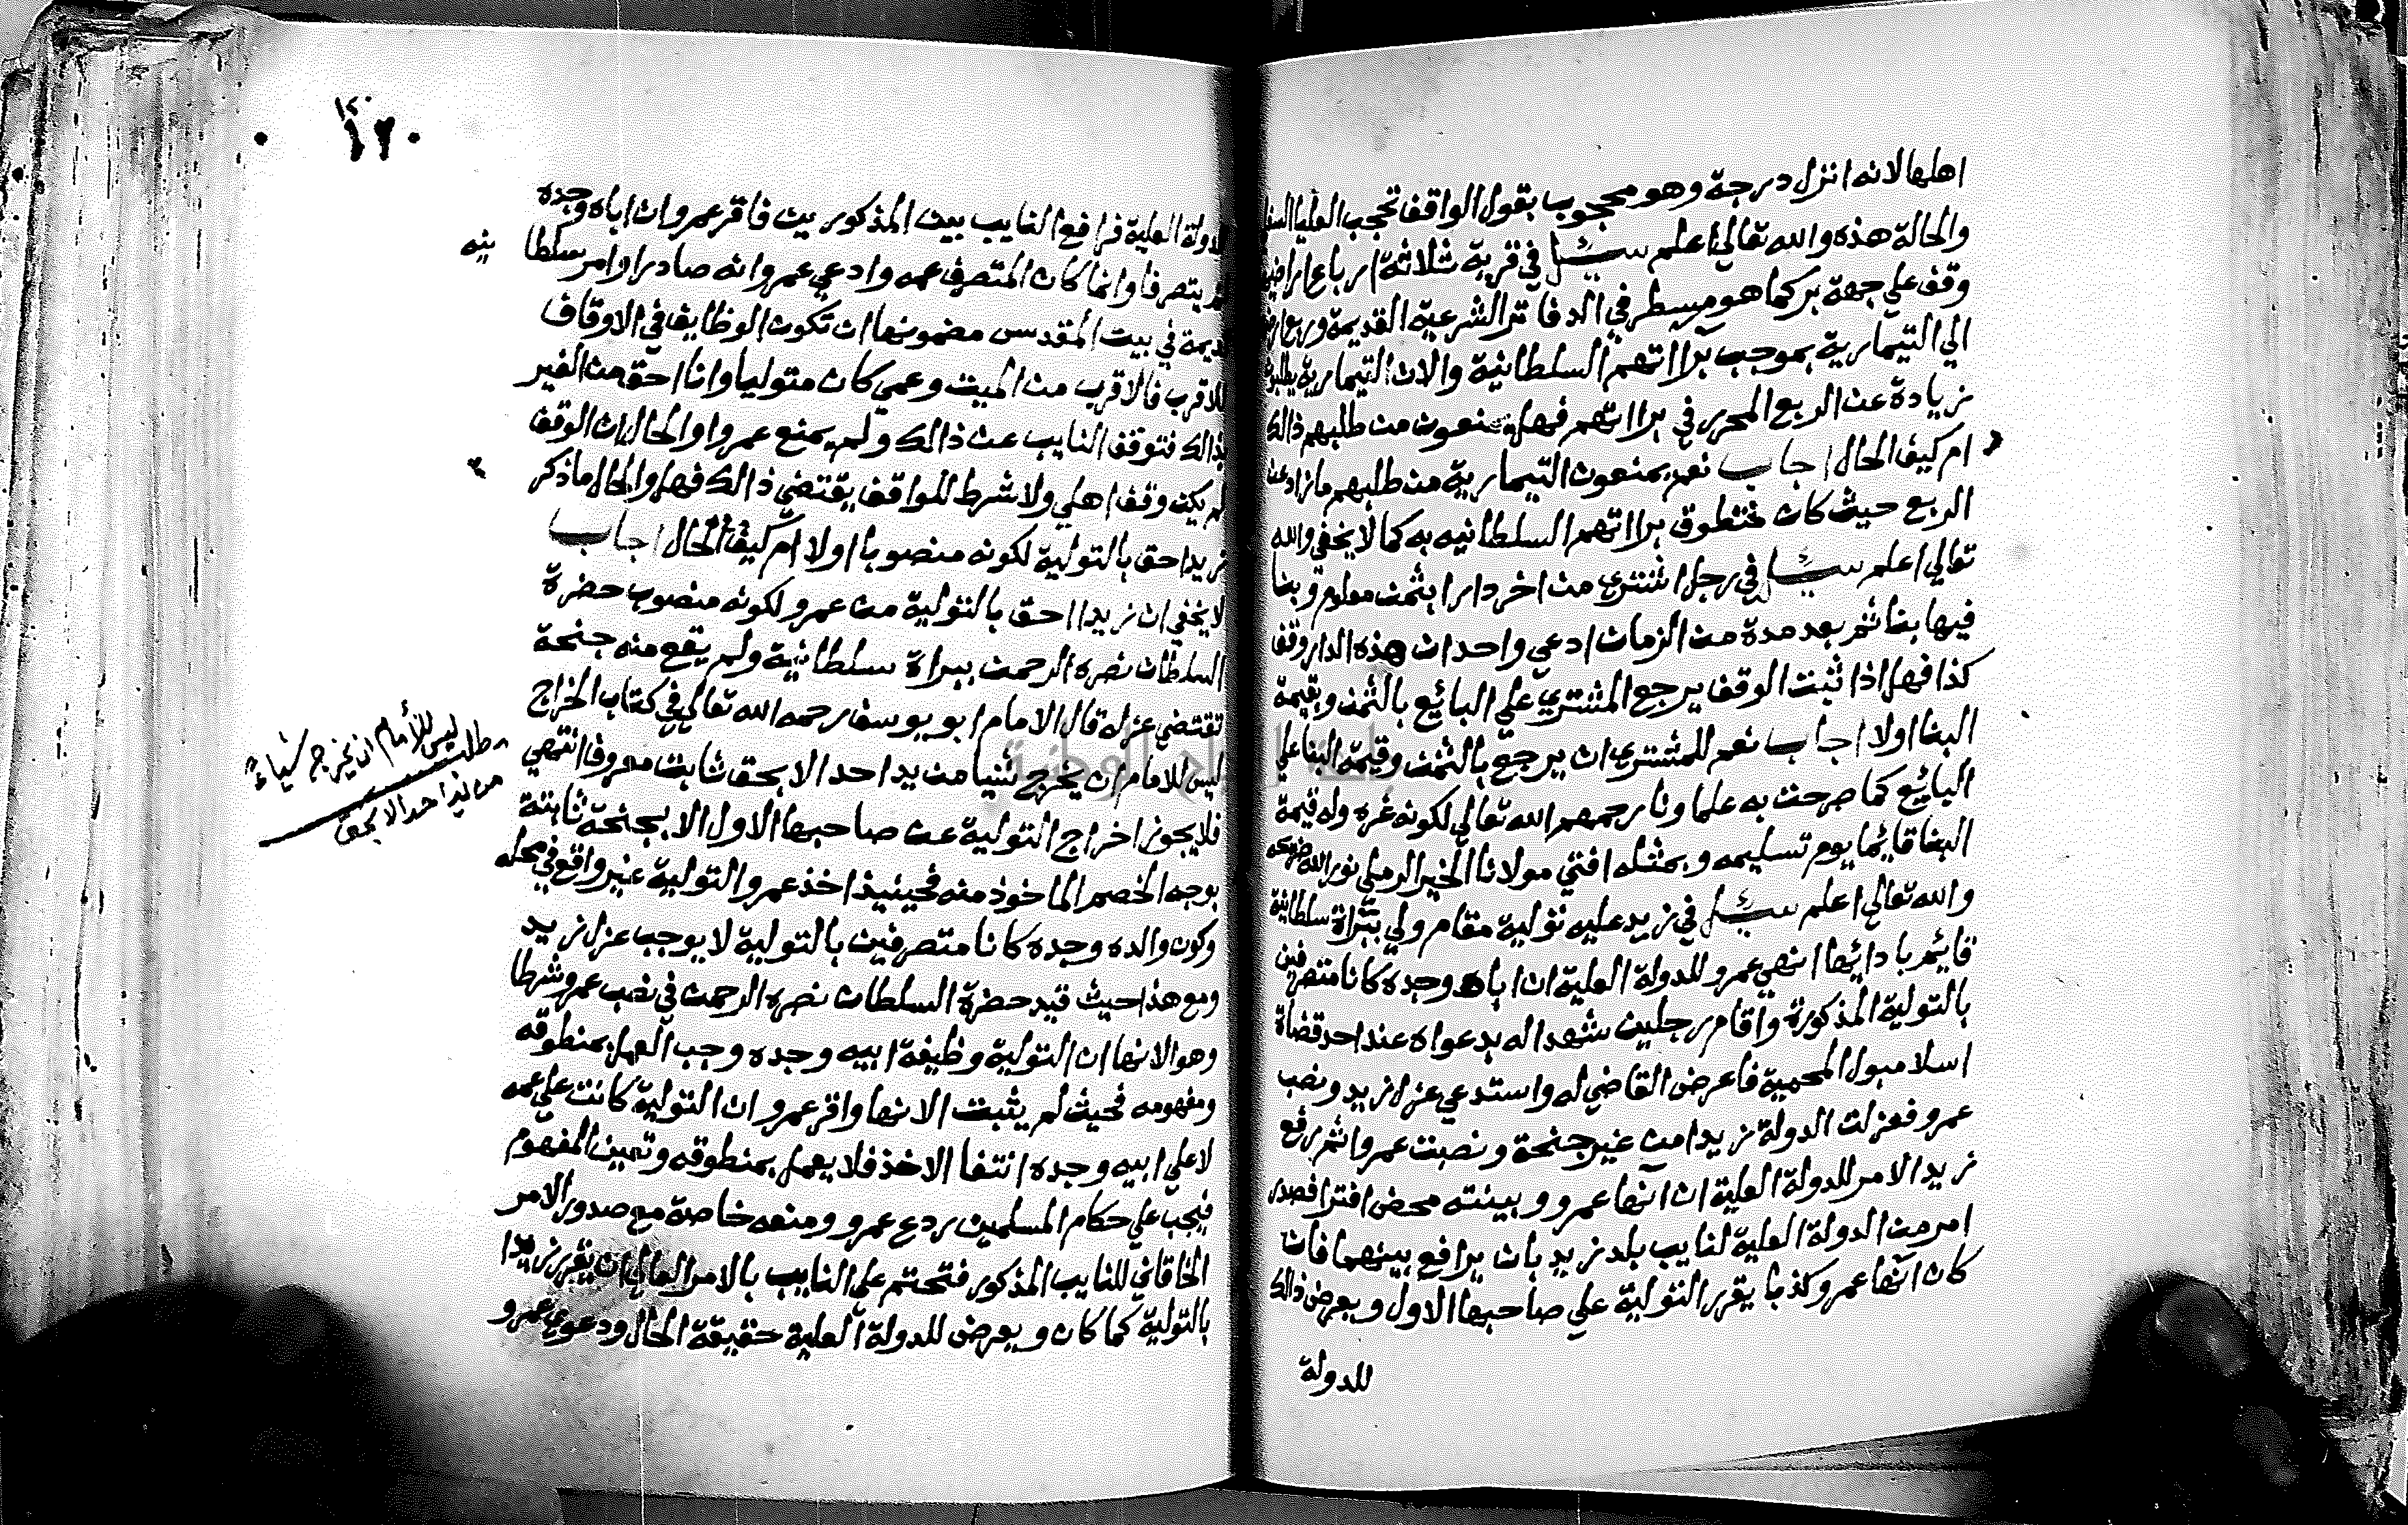 اهلها لانه انزل درجة وهو محجوب بقول الواقف تحجب العليا السفلى
والحالة هذه والله تعالي اعلم سئل في قرية ثلاثة ارباع اراضيها
وقف علي جهة بر كما هو مسطر في الدفاتر الشرعية القديمة وربع ارض
الي التيمارية بموجب براآتهم السلطانية والان التيمارية يطلبون
زيادة عن الربع المحرر في براآتهم فهل يمنعون من طلبهم ذالك
ام كيف الحال اجاب نعم يمنعون التيمارية من طلبهم ما زاد عن
الربع حيث كان منطوق براآتهم السلطانيه به كما لا يخفي والله
تعالي اعلم سئل في رجل اشتري من اخر دارا بثمن معلوم وبنا
فيها بنا ثم بعد مدة من الزمان ادعي واحد ان هذه الدار وقف
كذا فهل اذا ثبت الوقف يرجع المشتري علي البائع بالثمن وبقيمة
البنا اولا اجاب نعم للمشتري ان يرجع بالثمن وقيمة البنا علي
البائع كما صرحت به علماونا رحمهم الله تعالي لكونه غره وله قيمة
البنا قائما يوم تسليمه وبمثله افتي مولانا الخير الرملي نور الله ضريحه
والله تعالي اعلم سئل في زيد عليه تولية مقام ولي ببراة سلطانية
قايم بادائها انهي عمرو للدولة العلية ان اباه وجده كانا متصرفين
بالتولية المذكورة واقام رجلين شهدا له بدعواه عند احد قضاة
اسلامبول المحمية فاعرض القاضي له واستدعي عزل زيد ونصب
عمرو فعزلت الدولة زيدا من غير جنحة ونصبت عمروا ثم رفع
زيد الامر للدولة العلية ان انها عمرو وبينته محض افترا فصدر
امر من الدولة العلية لنايب بلد زيد بان يرافع بينهما فان
كان انها عمرو كذبا يقرر التولية علي صاحبها الاول ويعرض ذالك
للدولة
١٤٠
١٢٠
للدولة العلية فرافع النايب بين المذكورين فاقر عمرو ان اباه وجده
لم يتصرفا وانما كان المتصرف عمه وادعي عمرو انه صادر اوامر سلطانيه
قديمة في بيت المقدس مضمونها ان تكون الوظايف في الاوقاف
للاقرب فالاقرب من الميت وعمي كان متوليا وانا احق من الغير
بذالك فتوقف النايب عن ذالك ولم يمنع عمروا والحال ان الوقف
لم يكن وقف اهلي ولا شرط للواقف يقتضي ذالك فهل والحال ما ذكر
زيد احق بالتولية لكونه منصوبا اولا ام كيف الحال اجاب
لا يخفي ان زيدا احق بالتولية من عمرو لكونه منصوب حضرة
السلطان نصره الرحمن ببراة سلطانية ولم يقع منه جنحة
تقتضي عزله قال الامام ابو يوسف رحمه الله تعالي في كتاب الخراج
ليس للامام ان يخرج شيا من يد احد الا بحق ثابت معروف انتهي
فلا يجوز اخراج التولية عن صاحبها الاول الا بجنحة ثابتة
بوجه الخصم الماخوذ منه فحينيذ اخذ عمرو التولية غير واقع في محله
وكون والده وجده كانا متصرفين بالتولية لا يوجب عزل زيد
ومع هذا حيث قيد حضرة السلطان نصره الرحمن في نصب عمرو شرطا
وهو الانها ان التولية وظيفة ابيه وجده وجب العمل بمنطوقه
ومفهومه فحيث لم يثبت الانها واقر عمرو ان التولية كانت علي عمه
لا علي ابيه وجده انتفا الاخذ فلا يعمل بمنطوقه وتعين المفهوم
فيجب علي حكام المسلمين ردع عمرو ومنعه خاصة مع صدور الامر
الخاقاني للنايب المذكور فتحتم علي النايب بالامر العالي ان يقرر زيدا
بالتولية كما كان ويعرض للدولة العلية حقيقة الحال ودعوي عمرو
مطلب ليس للأمام ان يخرج شياءً
من يد احد الا بحق